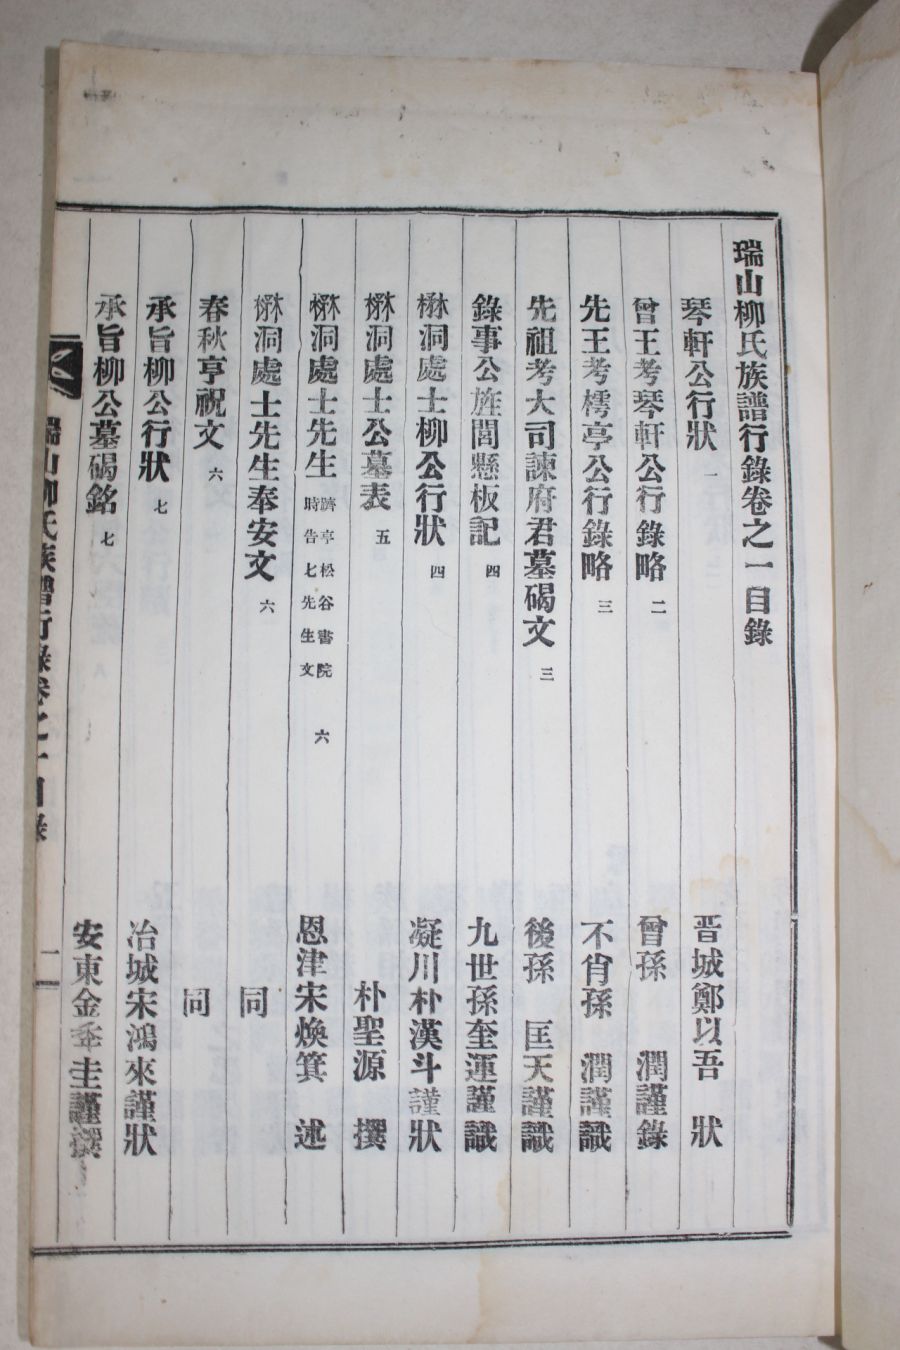 瑞山柳氏族譜行錄卷之一目錄
琴軒公行狀 一 晋城鄭以吾 狀
曾王考琴軒公行錄略 二 曾孫 潤謹錄
先王考樗亭公行錄略 三 不肖孫 潤謹識
先祖考大司諫府君墓碣文 三 後孫 匡天謹識
錄事公旌閭懸板記 四 九世孫奎運謹識
楙洞處士柳公行狀 四 凝川朴漢斗謹狀
楙洞處士公墓表 五 朴聖源 撰
楙洞處士先生 躋享松谷書院時告七先生文 六 恩津宋煥箕 述
楙洞處士先生奉安文 六 同
春秋享祝文 六 同
承旨柳公行狀 七 冶城宋鴻來謹狀
承旨柳公墓碣銘 七 安東金奎圭謹撰
瑞山柳氏族譜行錄卷之一目錄 一